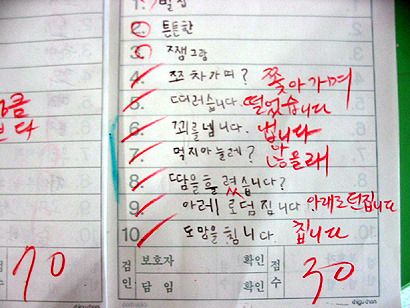 1.
2. 튼튼한
3. 쨈그랑
4. 쯔차가며? 쫓아가며
5. 떠러습니다 떨었습니다
6. 꾀루 넵니다. 냅니다
7. 먹지아눌레? 않을래
8. 땀을흘렸습니다?
9. 아레로덤짐니다 아래로던집니다
10. 도망을침니다. 칩니다
점수 70
검인 보호자 확인
담임 확인
점수 30